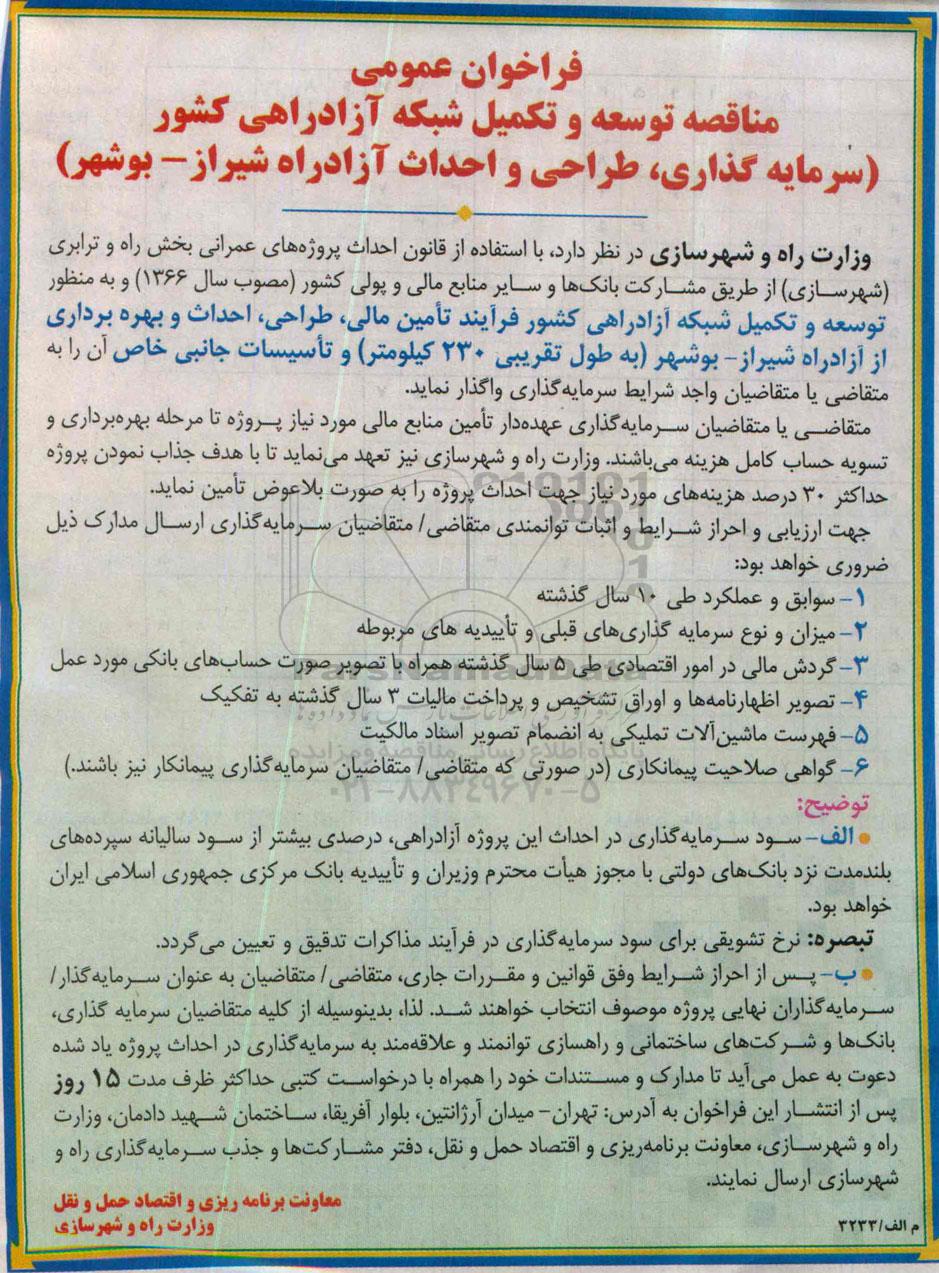 فراخوان عمومی
مناقصه توسعه و تکمیل شبکه آزادراهی کشور
(سرمایه گذاری، طراحی و احداث آزادراه شیراز- بوشهر)
وزارت راه و شهرسازی در نظر دارد، با استفاده از قانون احداث پروژه‌های عمرانی بخش راه و ترابری
(شهرسازی) از طریق مشارکت بانک‌ها و سایر منابع مالی و پولی کشور (مصوب سال ۱۳۶۶) و به منظور
توسعه و تکمیل شبکه آزادراهی کشور فرآیند تأمین مالی، طراحی، احداث و بهره برداری
از آزادراه شیراز- بوشهر (به طول تقریبی ۲۳۰ کیلومتر) و تأسیسات جانبی خاص آن را به
متقاضی یا متقاضیان واجد شرایط سرمایه‌گذاری واگذار نماید.
متقاضی یا متقاضیان سرمایه‌گذاری عهده‌دار تأمین منابع مالی مورد نیاز پروژه تا مرحله بهره‌برداری و
تسویه حساب کامل هزینه می‌باشند. وزارت راه و شهرسازی نیز تعهد می‌نماید تا با هدف جذاب نمودن پروژه
حداکثر ۳۰ درصد هزینه‌های مورد نیاز جهت احداث پروژه را به صورت بلاعوض تأمین نماید.
جهت ارزیابی و احراز شرایط و اثبات توانمندی متقاضی/ متقاضیان سرمایه‌گذاری ارسال مدارک ذیل
ضروری خواهد بود:
۱- سوابق و عملکرد طی ۱۰ سال گذشته
۲- میزان و نوع سرمایه گذاری‌های قبلی و تأییدیه های مربوطه
۳- گردش مالی در امور اقتصادی طی ۵ سال گذشته همراه با تصویر صورت حساب‌های بانکی مورد عمل
۴- تصویر اظهارنامه‌ها و اوراق تشخیص و پرداخت مالیات ۳ سال گذشته به تفکیک
۵- فهرست ماشین‌آلات تملیکی به انضمام تصویر اسناد مالکیت
۶- گواهی صلاحیت پیمانکاری (در صورتی که متقاضی/ متقاضیان سرمایه‌گذاری پیمانکار نیز باشند.)
توضیح:
● الف- سود سرمایه‌گذاری در احداث این پروژه آزادراهی، درصدی بیشتر از سود سالیانه سپرده‌های
بلندمدت نزد بانک‌های دولتی با مجوز هیأت محترم وزیران و تأییدیه بانک مرکزی جمهوری اسلامی ایران
خواهد بود.
تبصره: نرخ تشویقی برای سود سرمایه‌گذاری در فرآیند مذاکرات تدقیق و تعیین می‌گردد.
● ب- پس از احراز شرایط وفق قوانین و مقررات جاری، متقاضی/ متقاضیان به عنوان سرمایه‌گذار/
سرمایه‌گذاران نهایی پروژه موصوف انتخاب خواهند شد. لذا، بدینوسیله از کلیه متقاضیان سرمایه گذاری،
بانک‌ها و شرکت‌های ساختمانی و راهسازی توانمند و علاقه‌مند به سرمایه‌گذاری در احداث پروژه یاد شده
دعوت به عمل می‌آید تا مدارک و مستندات خود را همراه با درخواست کتبی حداکثر ظرف مدت ۱۵ روز
پس از انتشار این فراخوان به آدرس: تهران- میدان آرژانتین، بلوار آفریقا، ساختمان شهید دادمان، وزارت
راه و شهرسازی، معاونت برنامه‌ریزی و اقتصاد حمل و نقل، دفتر مشارکت‌ها و جذب سرمایه‌گذاری راه و
شهرسازی ارسال نمایند.
معاونت برنامه ریزی و اقتصاد حمل و نقل
وزارت راه و شهرسازی
م الف/۳۲۳۳
ParsNamadData
پایگاه اطلاع رسانی مناقصه و مزایده
۰۲۱-۸۸۳۴۹۶۷۰-۵